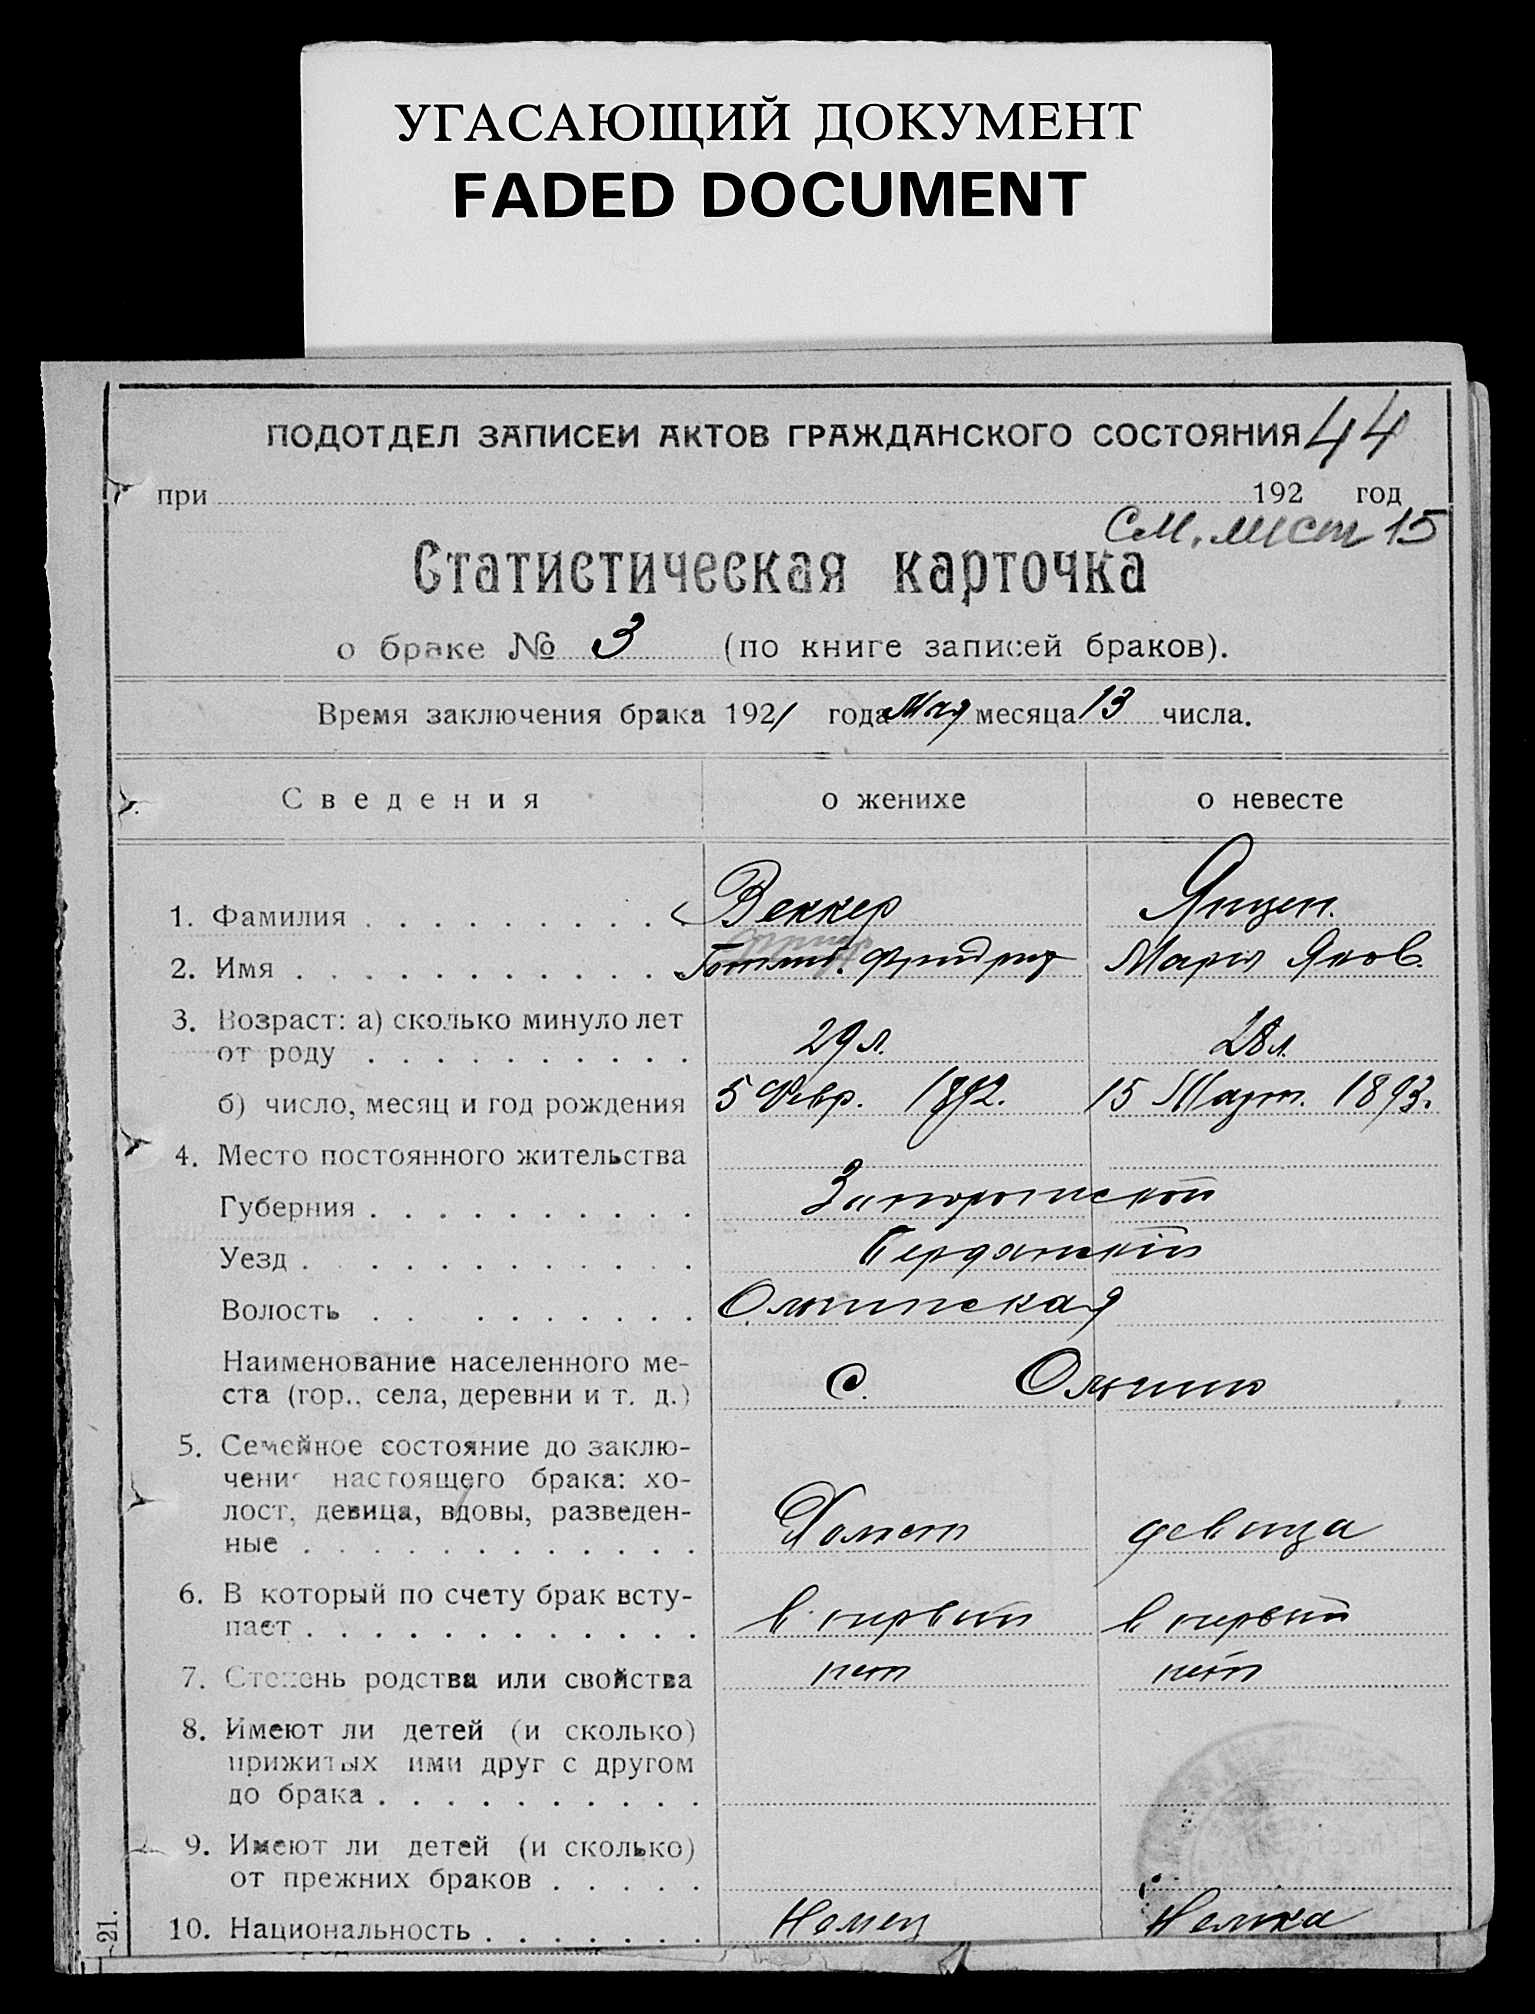 УГАСАЮЩИЙ ДОКУМЕНТ
FADED DOCUMENT
ПОДОТДЕЛ ЗАПИСЕЙ АКТОВ ГРАЖДАНСКОГО СОСТОЯНИЯ 44
при 192 год
См. лист 15
Статистическая карточка
о браке № 3 (по книге записей браков).
Время заключения брака 1921 года Мая месяца 13 числа.
Сведения о женихе о невесте
1. Фамилия Веккер Янцен.
2. Имя Готлиб. Фридрих Мария Яков.
3. Возраст: а) сколько минуло лет
от роду 29 л. 28 л.
б) число, месяц и год рождения 5 Февр. 1892. 15 Март. 1893.
4. Место постоянного жительства
Губерния Запорожской
Уезд Бердянский
Волость Ольгинская
Наименование населенного ме-
ста (гор., села, деревни и т. д.) с. Ольгино
5. Семейное состояние до заклю-
чения настоящего брака: хо-
лост, девица, вдовы, разведен-
ные Холост девица
6. В который по счету брак всту-
пает в первый в первый
7. Степень родства или свойства нет нет
8. Имеют ли детей (и сколько)
прижитых ими друг с другом
до брака
9. Имеют ли детей (и сколько)
от прежних браков
10. Национальность Немец Немка
21.